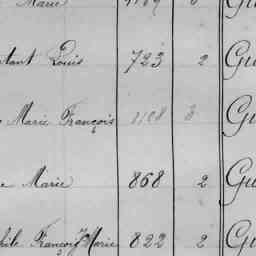 Marie
Louis 723 2 Gu
Marie François 1108 3 Gu
e Marie 868 2 Gu
hile François Marie 822 2 Gu